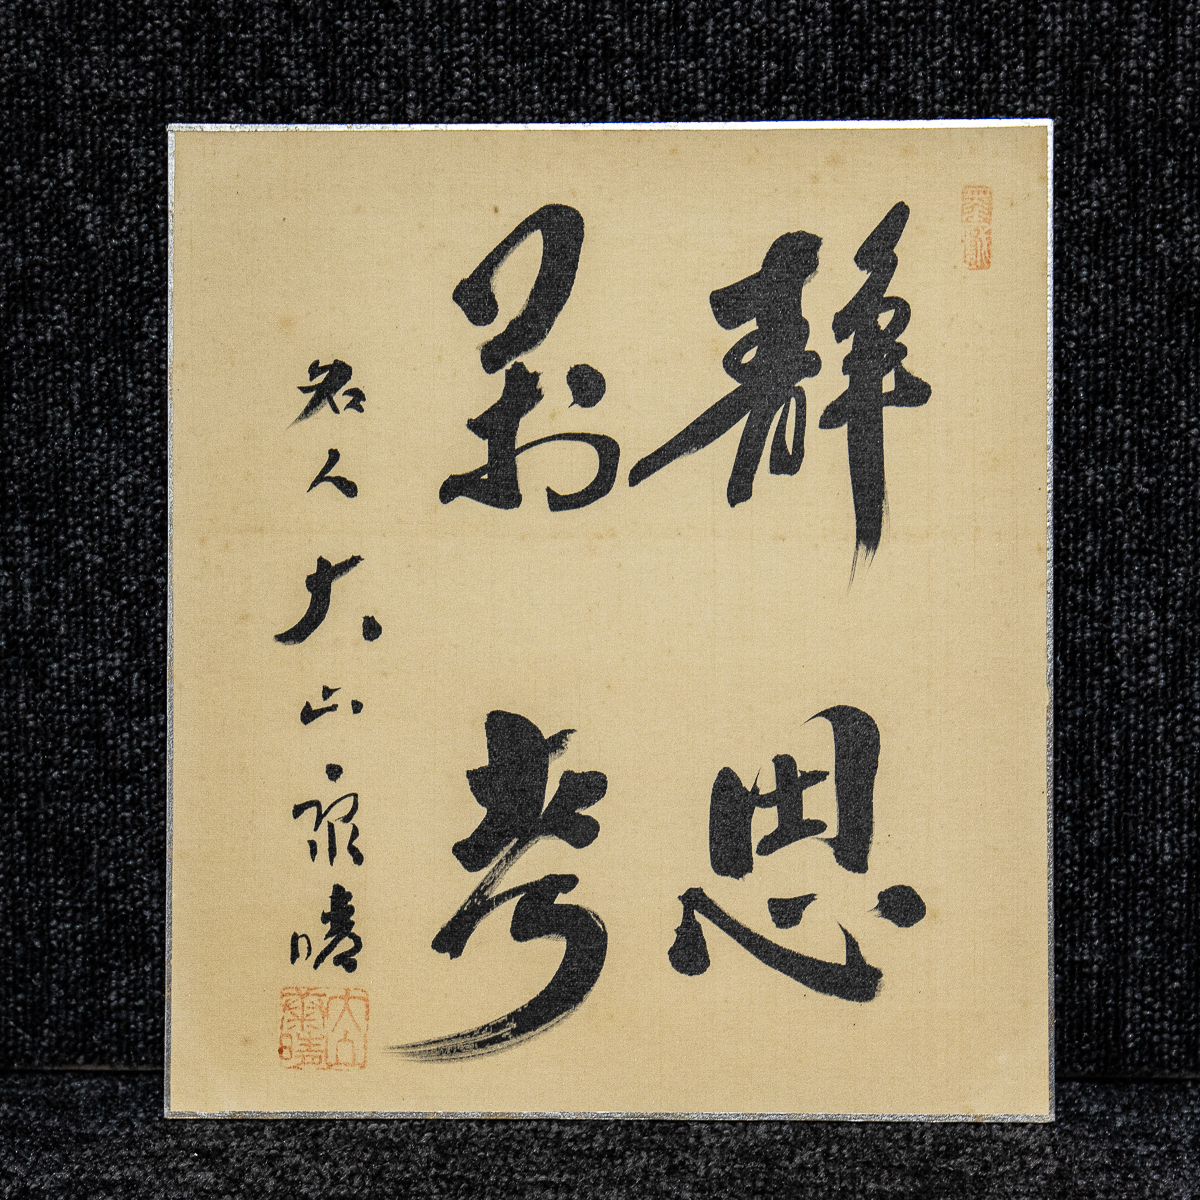 静思
考
名人大山康晴
大山
康晴